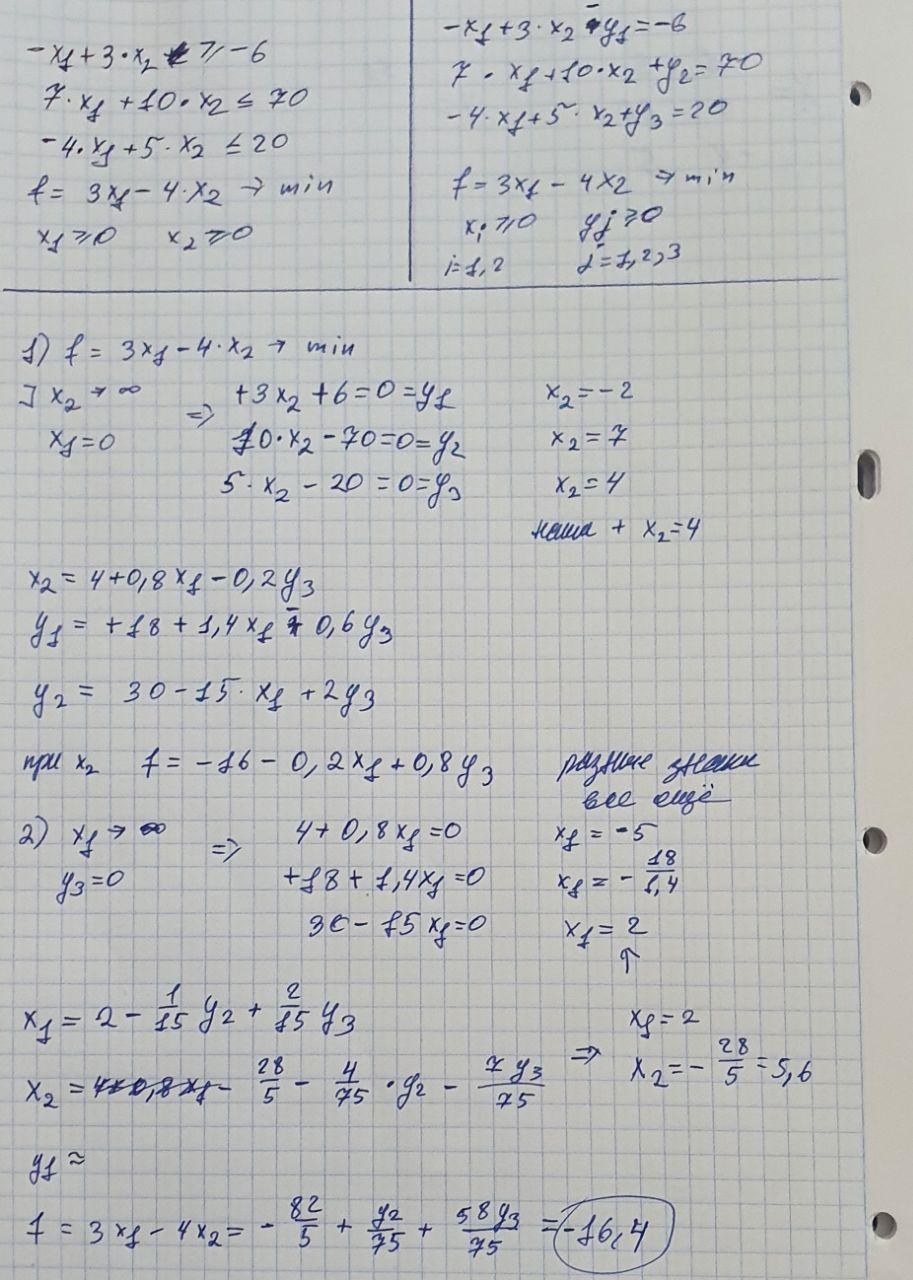 -x₁+3·x₂ ≥ -6
7·x₁+10·x₂ ≤ 70
-4·x₁+5·x₂ ≤ 20
f = 3x₁-4·x₂ → min
x₁ ≥ 0 x₂ ≥ 0
-x₁+3·x₂ - y₁ = -6
7·x₁+10·x₂+y₂ = 70
-4·x₁+5·x₂+y₃ = 20
f = 3x₁ - 4x₂ → min
xᵢ ≥ 0 yⱼ ≥ 0
i = 1,2 j = 1,2,3
1) f = 3x₁-4·x₂ → min
] x₂ → ∞ ⇒ +3x₂+6=0=y₁ x₂ = -2
x₁=0 10·x₂-70=0=y₂ x₂ = 7
5·x₂-20=0=y₃ x₂ = 4
наша + x₂=4
x₂ = 4+0,8x₁-0,2y₃
y₁ = +18+1,4x₁ - 0,6y₃
y₂ = 30-15·x₁+2y₃
при x₂ f = -16-0,2x₁+0,8y₃ разные знаки
все ещё
2) x₁ → ∞ ⇒ 4+0,8x₁=0 x₁ = -5
y₃=0 +18+1,4x₁=0 x₁ = -18/1,4
30-15x₁=0 x₁ = 2
↑
x₁ = 2 - 1/15 y₂ + 2/15 y₃ ⇒ x₁ = 2
x₂ = - 28/5 - 4/75 · y₂ - 7y₃/75 x₂ = - 28/5 = 5,6
y₁ ≈
f = 3x₁-4x₂ = - 82/5 + y₂/75 + 58y₃/75 = -16,4